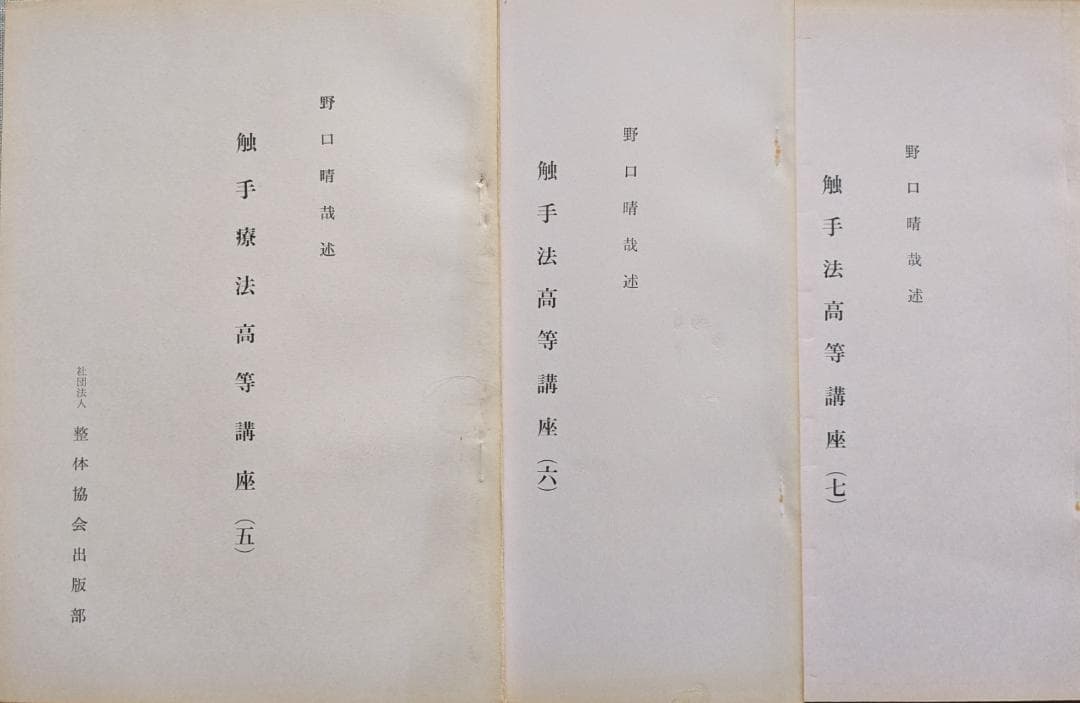 野口晴哉述
触手療法高等講座(五)
社団法人 整体協会出版部
野口晴哉述
触手法高等講座(六)
野口晴哉述
触手法高等講座(七)